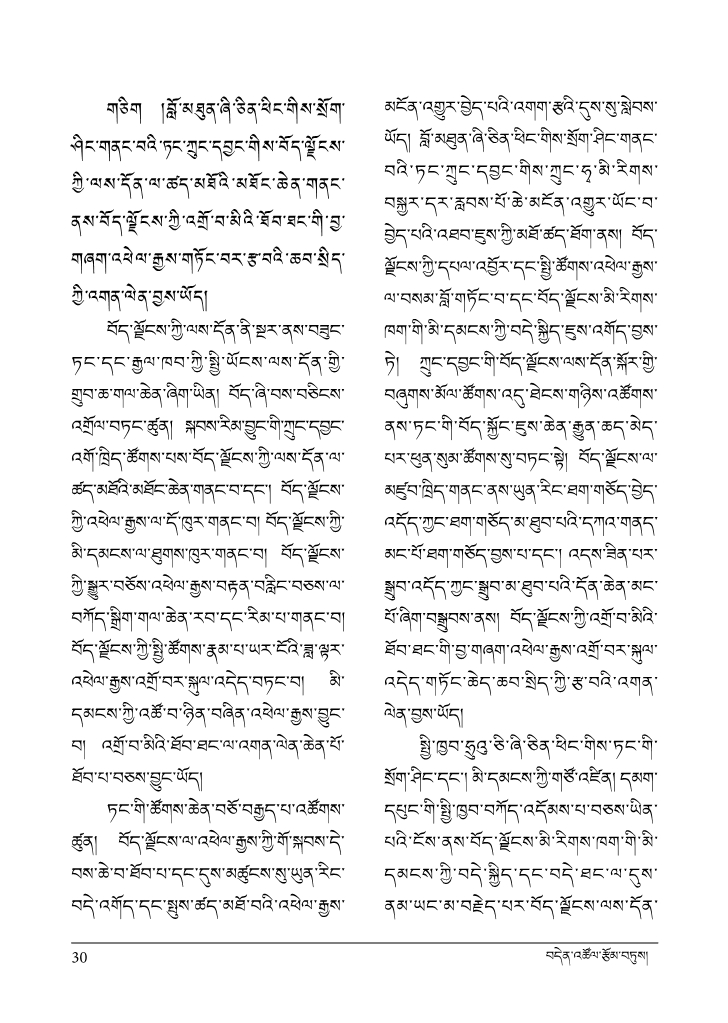 གཅིག །བློ་མཐུན་ཞི་ཅིན་ཕིང་གིས་སྲོག་
ཤིང་གནང་བའི་ཏང་ཀྲུང་དབྱང་གིས་བོད་ལྗོངས་
ཀྱི་ལས་དོན་ལ་ཚད་མཐོའི་མཐོང་ཆེན་གནང་
ནས་བོད་ལྗོངས་ཀྱི་འགྲོ་བ་མིའི་ཐོབ་ཐང་གི་བྱ་
གཞག་འཕེལ་རྒྱས་གཏོང་བར་རྩ་བའི་ཆབ་སྲིད་
ཀྱི་འགན་ལེན་བྱས་ཡོད།
བོད་ལྗོངས་ཀྱི་ལས་དོན་ནི་སྔར་ནས་བཟུང་
ཏང་དང་རྒྱལ་ཁབ་ཀྱི་སྤྱི་ཡོངས་ལས་དོན་གྱི་
གྲུབ་ཆ་གལ་ཆེན་ཞིག་ཡིན། བོད་ཞི་བས་བཅིངས་
འགྲོལ་བཏང་ཚུན། སྐབས་རིམ་བྱུང་གི་ཀྲུང་དབྱང་
འགོ་ཁྲིད་ཚོགས་པས་བོད་ལྗོངས་ཀྱི་ལས་དོན་ལ་
ཚད་མཐོའི་མཐོང་ཆེན་གནང་བ་དང་། བོད་ལྗོངས་
ཀྱི་འཕེལ་རྒྱས་ལ་དོ་ཁུར་གནང་བ། བོད་ལྗོངས་ཀྱི་
མི་དམངས་ལ་ཐུགས་ཁུར་གནང་བ། བོད་ལྗོངས་
ཀྱི་སྒྱུར་བཅོས་འཕེལ་རྒྱས་བརྟན་བརླིང་བཅས་ལ་
བཀོད་སྒྲིག་གལ་ཆེན་རབ་དང་རིམ་པ་གནང་བ།
བོད་ལྗོངས་ཀྱི་སྤྱི་ཚོགས་རྣམ་པ་ཡར་ངོའི་ཟླ་ལྟར་
འཕེལ་རྒྱས་འགྲོ་བར་སྐུལ་འདེད་བཏང་བ། མི་
དམངས་ཀྱི་འཚོ་བ་ཉིན་བཞིན་འཕེལ་རྒྱས་བྱུང་
བ། འགྲོ་བ་མིའི་ཐོབ་ཐང་ལ་འགན་ལེན་ཆེན་པོ་
ཐོབ་པ་བཅས་བྱུང་ཡོད།
ཏང་གི་ཚོགས་ཆེན་བཅོ་བརྒྱད་པ་འཚོགས་
ཚུན། བོད་ལྗོངས་ལ་འཕེལ་རྒྱས་ཀྱི་གོ་སྐབས་དེ་
བས་ཆེ་བ་ཐོབ་པ་དང་དུས་མཚུངས་སུ་ཡུན་རིང་
བདེ་འགོད་དང་སྤུས་ཚད་མཐོ་བའི་འཕེལ་རྒྱས་
མངོན་འགྱུར་བྱེད་པའི་འགག་རྩའི་དུས་སུ་སླེབས་
ཡོད། བློ་མཐུན་ཞི་ཅིན་ཕིང་གིས་སྲོག་ཤིང་གནང་
བའི་ཏང་ཀྲུང་དབྱང་གིས་ཀྲུང་ཧྭ་མི་རིགས་
བསྐྱར་དར་རླབས་པོ་ཆེ་མངོན་འགྱུར་ཡོང་བ་
བྱེད་པའི་འཐབ་ཇུས་ཀྱི་མཐོ་ཚད་ཐོག་ནས། བོད་
ལྗོངས་ཀྱི་དཔལ་འབྱོར་དང་སྤྱི་ཚོགས་འཕེལ་རྒྱས་
ལ་བསམ་བློ་གཏོང་བ་དང་བོད་ལྗོངས་མི་རིགས་
ཁག་གི་མི་དམངས་ཀྱི་བདེ་སྐྱིད་ཇུས་འགོད་བྱས་
ཏེ། ཀྲུང་དབྱང་གི་བོད་ལྗོངས་ལས་དོན་སྐོར་གྱི་
བཞུགས་མོལ་ཚོགས་འདུ་ཐེངས་གཉིས་འཚོགས་
ནས་ཏང་གི་བོད་སྐྱོང་ཇུས་ཆེན་རྒྱུན་ཆད་མེད་
པར་ཕུན་སུམ་ཚོགས་སུ་བཏང་སྟེ། བོད་ལྗོངས་ལ་
མཛུབ་ཁྲིད་གནང་ནས་ཡུན་རིང་ཐག་གཅོད་བྱེད་
འདོད་ཀྱང་ཐག་གཅོད་མ་ཐུབ་པའི་དཀའ་གནད་
མང་པོ་ཐག་གཅོད་བྱས་པ་དང་། འདས་ཟིན་པར་
སྒྲུབ་འདོད་ཀྱང་སྒྲུབ་མ་ཐུབ་པའི་དོན་ཆེན་མང་
པོ་ཞིག་བསྒྲུབས་ནས། བོད་ལྗོངས་ཀྱི་འགྲོ་བ་མིའི་
ཐོབ་ཐང་གི་བྱ་གཞག་འཕེལ་རྒྱས་འགྲོ་བར་སྐུལ་
འདེད་གཏོང་ཆེད་ཆབ་སྲིད་ཀྱི་རྩ་བའི་འགན་
ལེན་བྱས་ཡོད།
སྤྱི་ཁྱབ་ཧྲུའུ་ཅི་ཞི་ཅིན་ཕིང་གིས་ཏང་གི་
སྲོག་ཤིང་དང་། མི་དམངས་ཀྱི་གཙོ་འཛིན། དམག་
དཔུང་གི་སྤྱི་ཁྱབ་བཀོད་འདོམས་པ་བཅས་ཡིན་
པའི་ངོས་ནས་བོད་ལྗོངས་མི་རིགས་ཁག་གི་མི་
དམངས་ཀྱི་བདེ་སྐྱིད་དང་བདེ་ཐང་ལ་དུས་
ནམ་ཡང་མ་བརྗེད་པར་བོད་ལྗོངས་ལས་དོན་
30
བདེན་འཚོལ་རྩོམ་བཏུས།